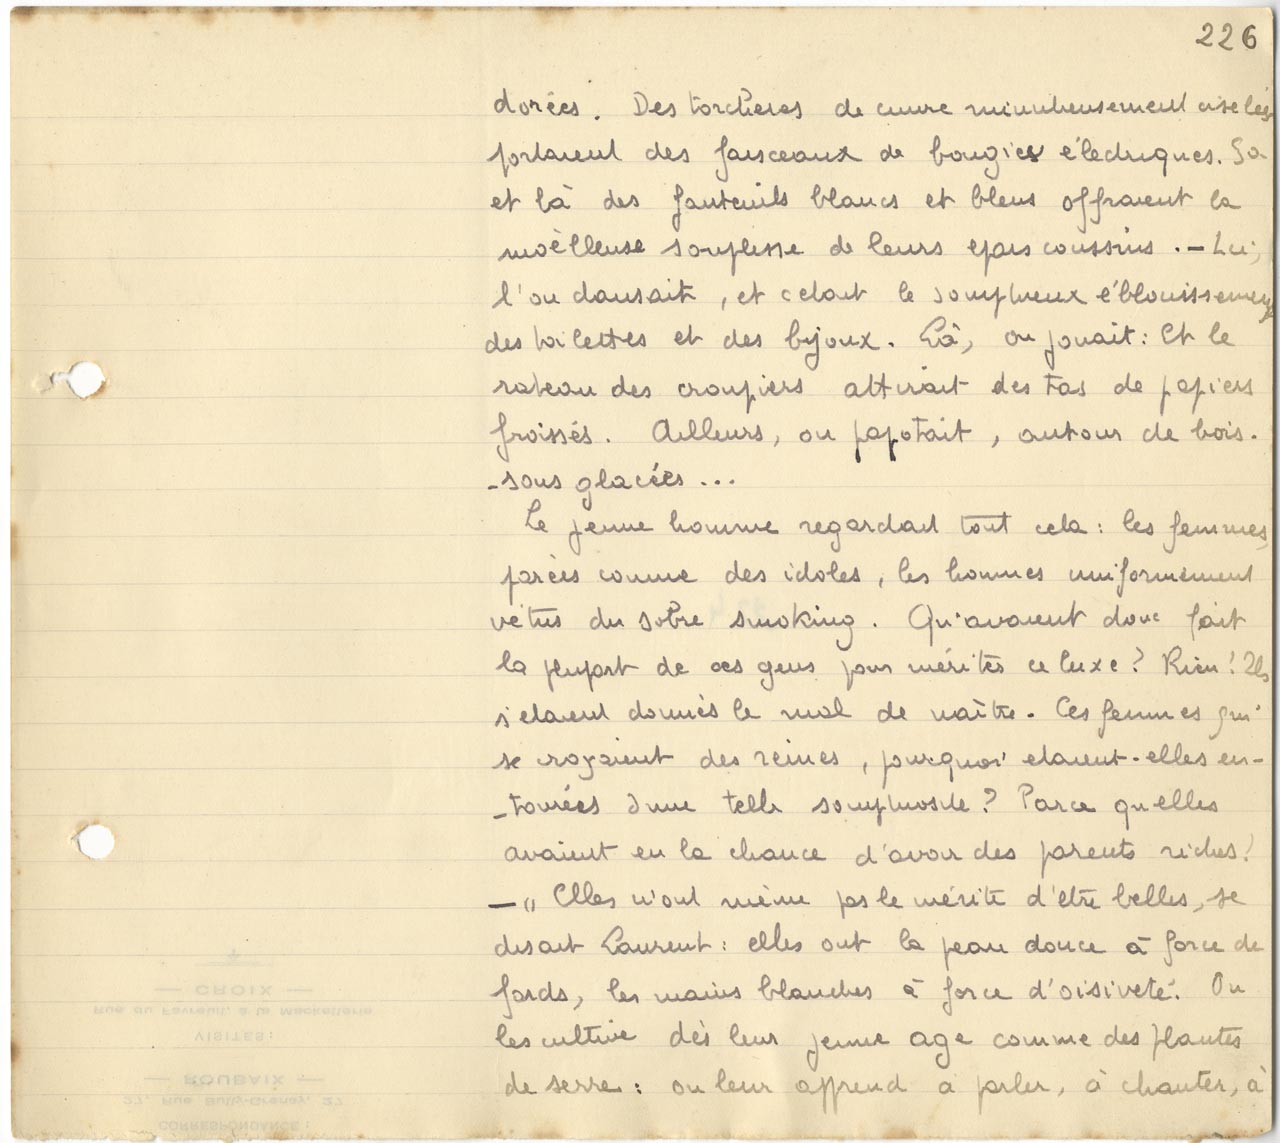 226
dorées. Des torchères de cuivre minutieusement ciselées
portaient des faisceaux de bougies électriques. Ça
et là des fauteuils blancs et bleus offraient la
moëlleuse souplesse de leurs épais coussins. — Ici,
l'on dansait, et c'était le somptueux éblouissement
des toilettes et des bijoux. Là, on jouait: Et le
rateau des croupiers attirait des tas de papiers
froissés. Ailleurs, on papotait, autour de bois-
-sons glacées...
Le jeune homme regardait tout cela: les femmes,
parées comme des idoles, les hommes uniformément
vêtus du sobre smoking. Qu'avaient donc fait
la plupart de ces gens pour mériter ce luxe? Rien! Ils
s'étaient donnés le mal de naître. Ces femmes qui
se croyaient des reines, pourquoi étaient-elles en-
-tourées d'une telle somptuosité? Parce qu'elles
avaient eu la chance d'avoir des parents riches!
— " Elles n'ont même pas le mérite d'être belles, se
disait Laurent: elles ont la peau douce à force de
fards, les mains blanches à force d'oisiveté. On
les cultive dès leur jeune age comme des plantes
de serre: on leur apprend à parler, à chanter, à
CROIX
Rue du Favreuil, à la Mackellerie
VISITES:
ROUBAIX
27, Rue Bully-Grenay, 27
CORRESPONDANCE: